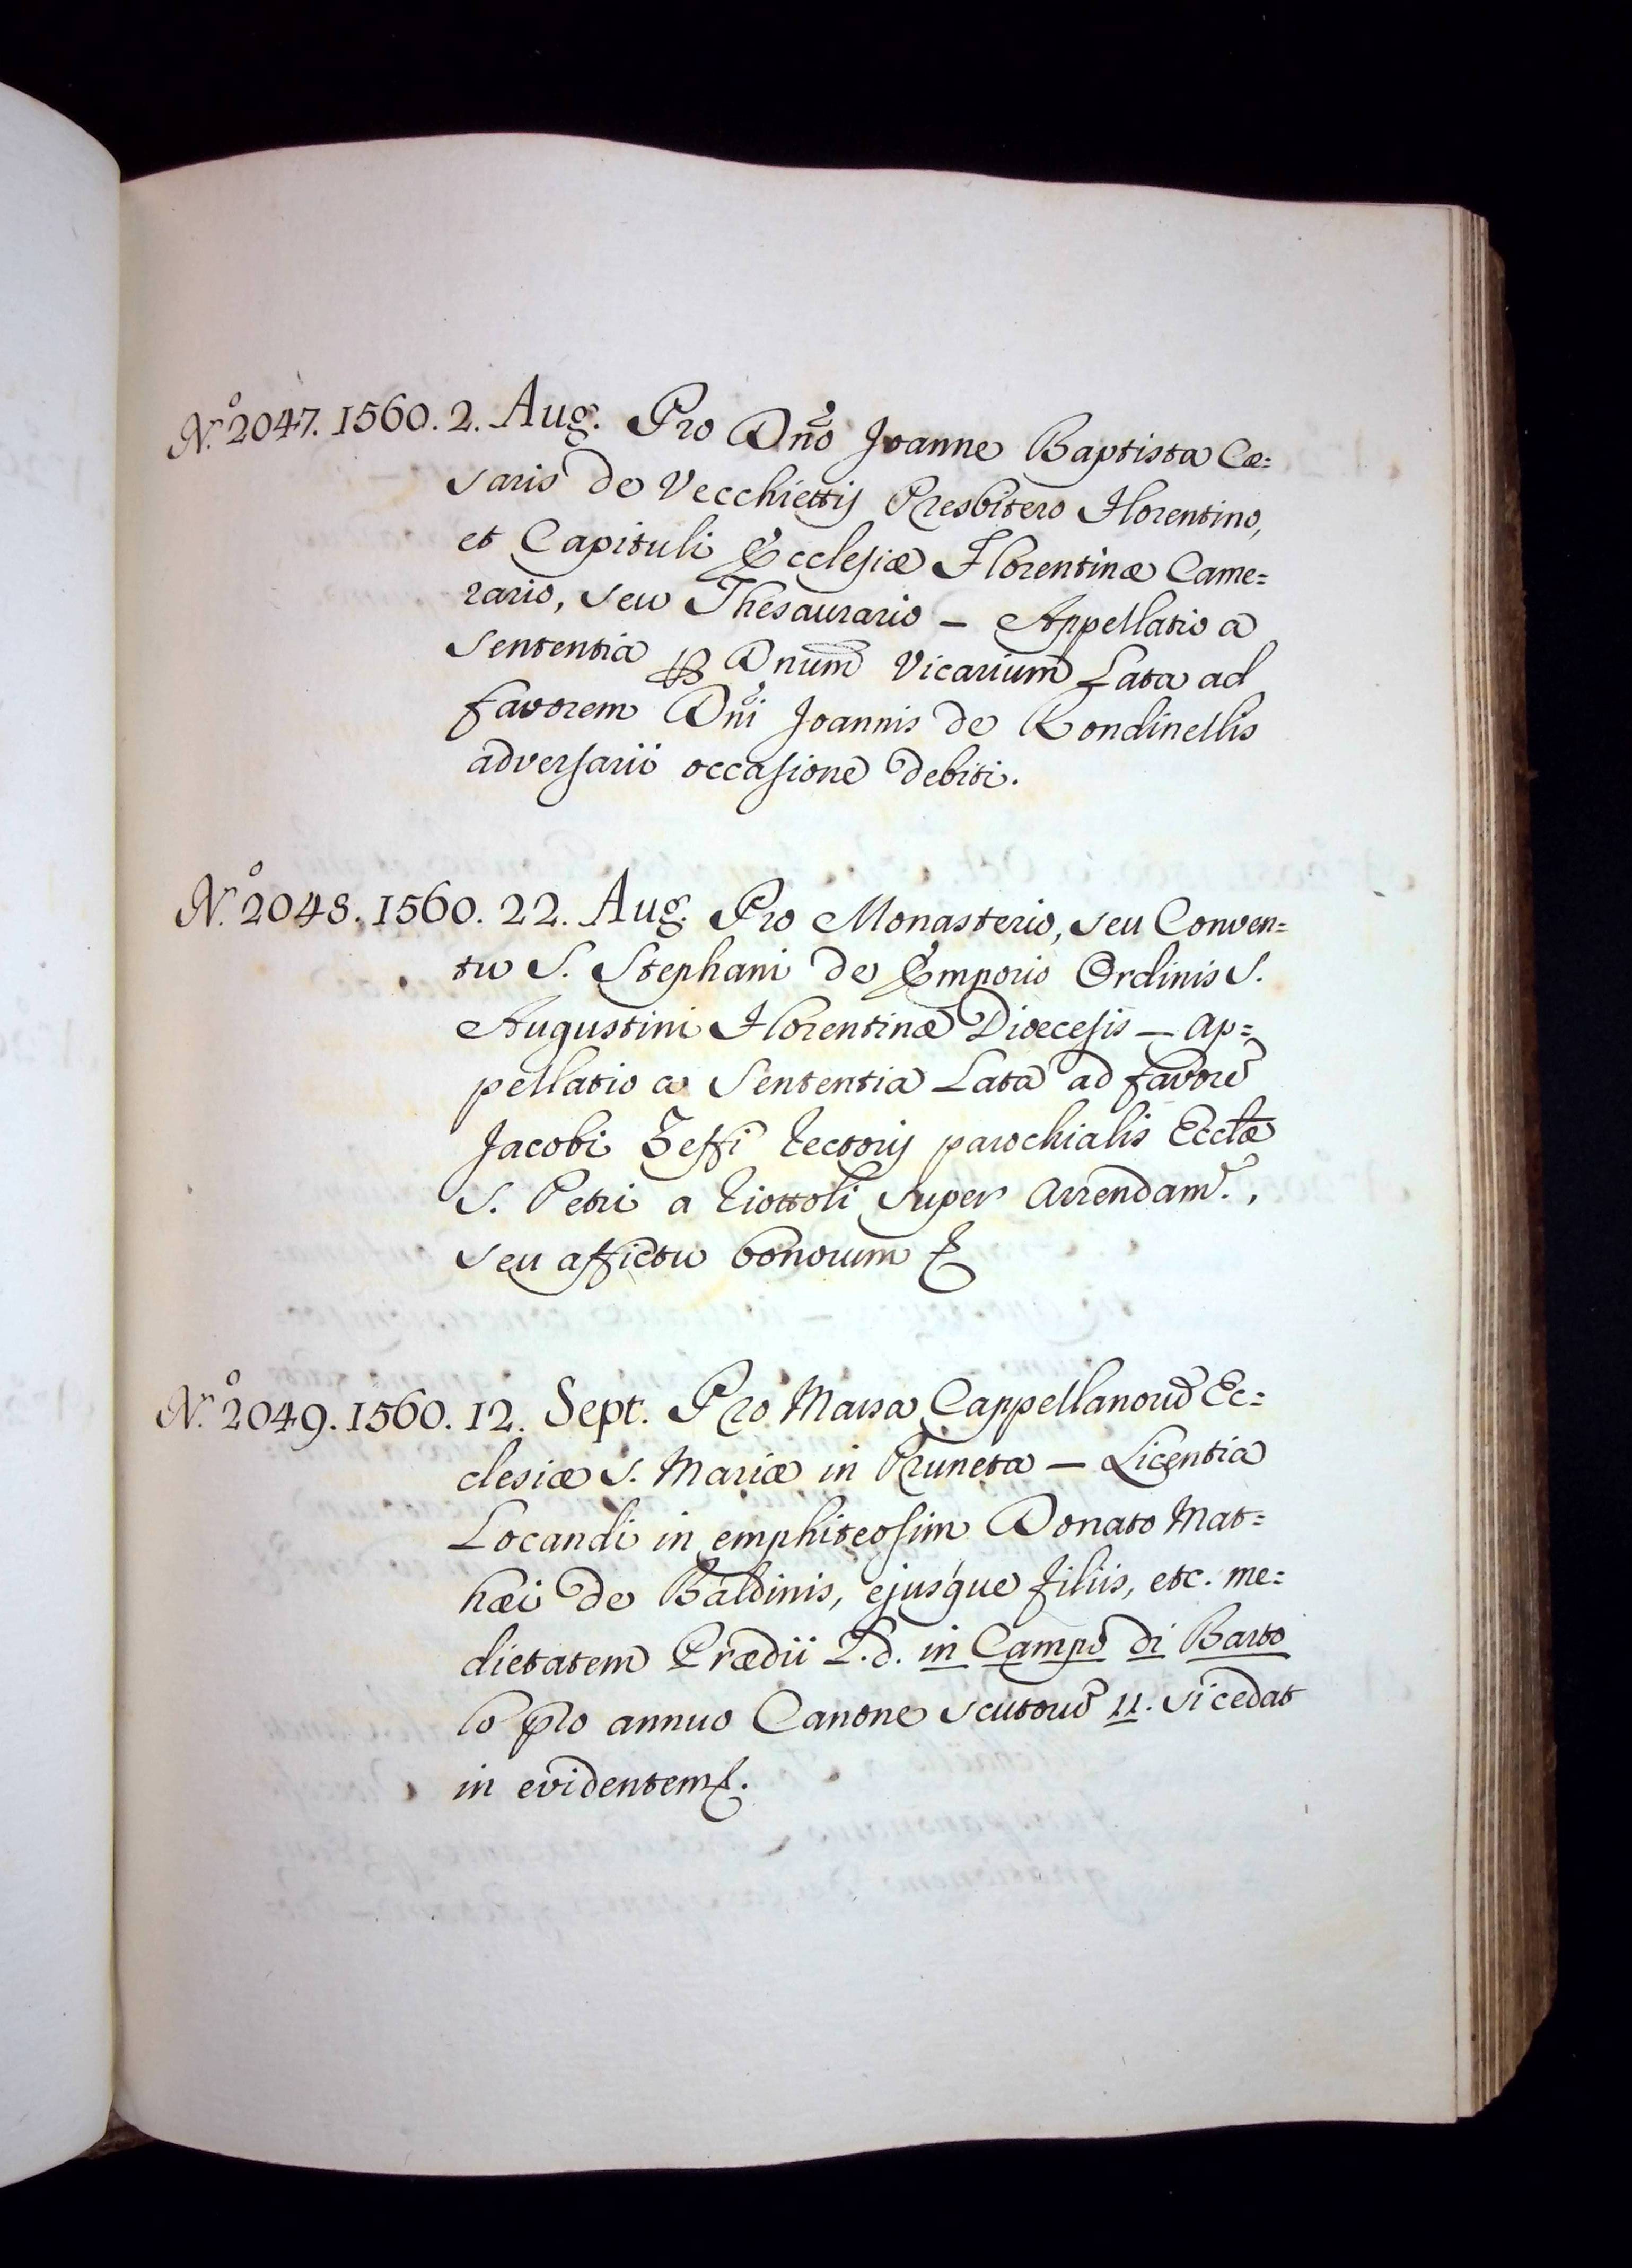 N.º 2047. 1560. 2. Aug. Pro Dño Joanne Baptista Cæ=
saris de Vecchiettij Presbitero Florentino,
et Capituli Ecclesiæ Florentinæ Came=
rario, seu Thesaurario — Appellatio a
Sententia ꝑ Dnum̃ Vicarium Lata ad
favorem Dñi Joannis de Rondinellis
adversarii occasione debiti.
N.º 2048. 1560. 22. Aug. Pro Monasterio, seu Conven=
tu S. Stephani de Emporio Ordinis S.
Augustini Florentinæ Dioecesis — Ap=
pellatio a Sententia Lata ad favorẽ
Jacobi Zeffi Rectorij parochialis Ecclæ
S. Petri a Riottoli super Arrendam.,
seu affictu bonorum &
N.º 2049. 1560. 12. Sept. Pro Massa Cappellanorũ Ec=
clesiæ S. Mariæ in Pruneta — Licentia
Locandi in emphiteosim Donato Mat=
hæi de Baldinis, ejusque filiis, etc. me=
dietatem Prædii L.d. in Campo di Barto
lo pro annuo Canone scutorũ 11. si cedat
in evidentem &.